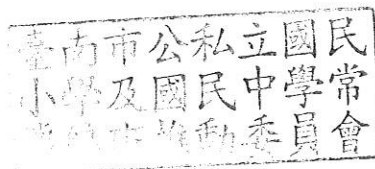 臺南市公私立國民
小學及國民中學常
動委員會